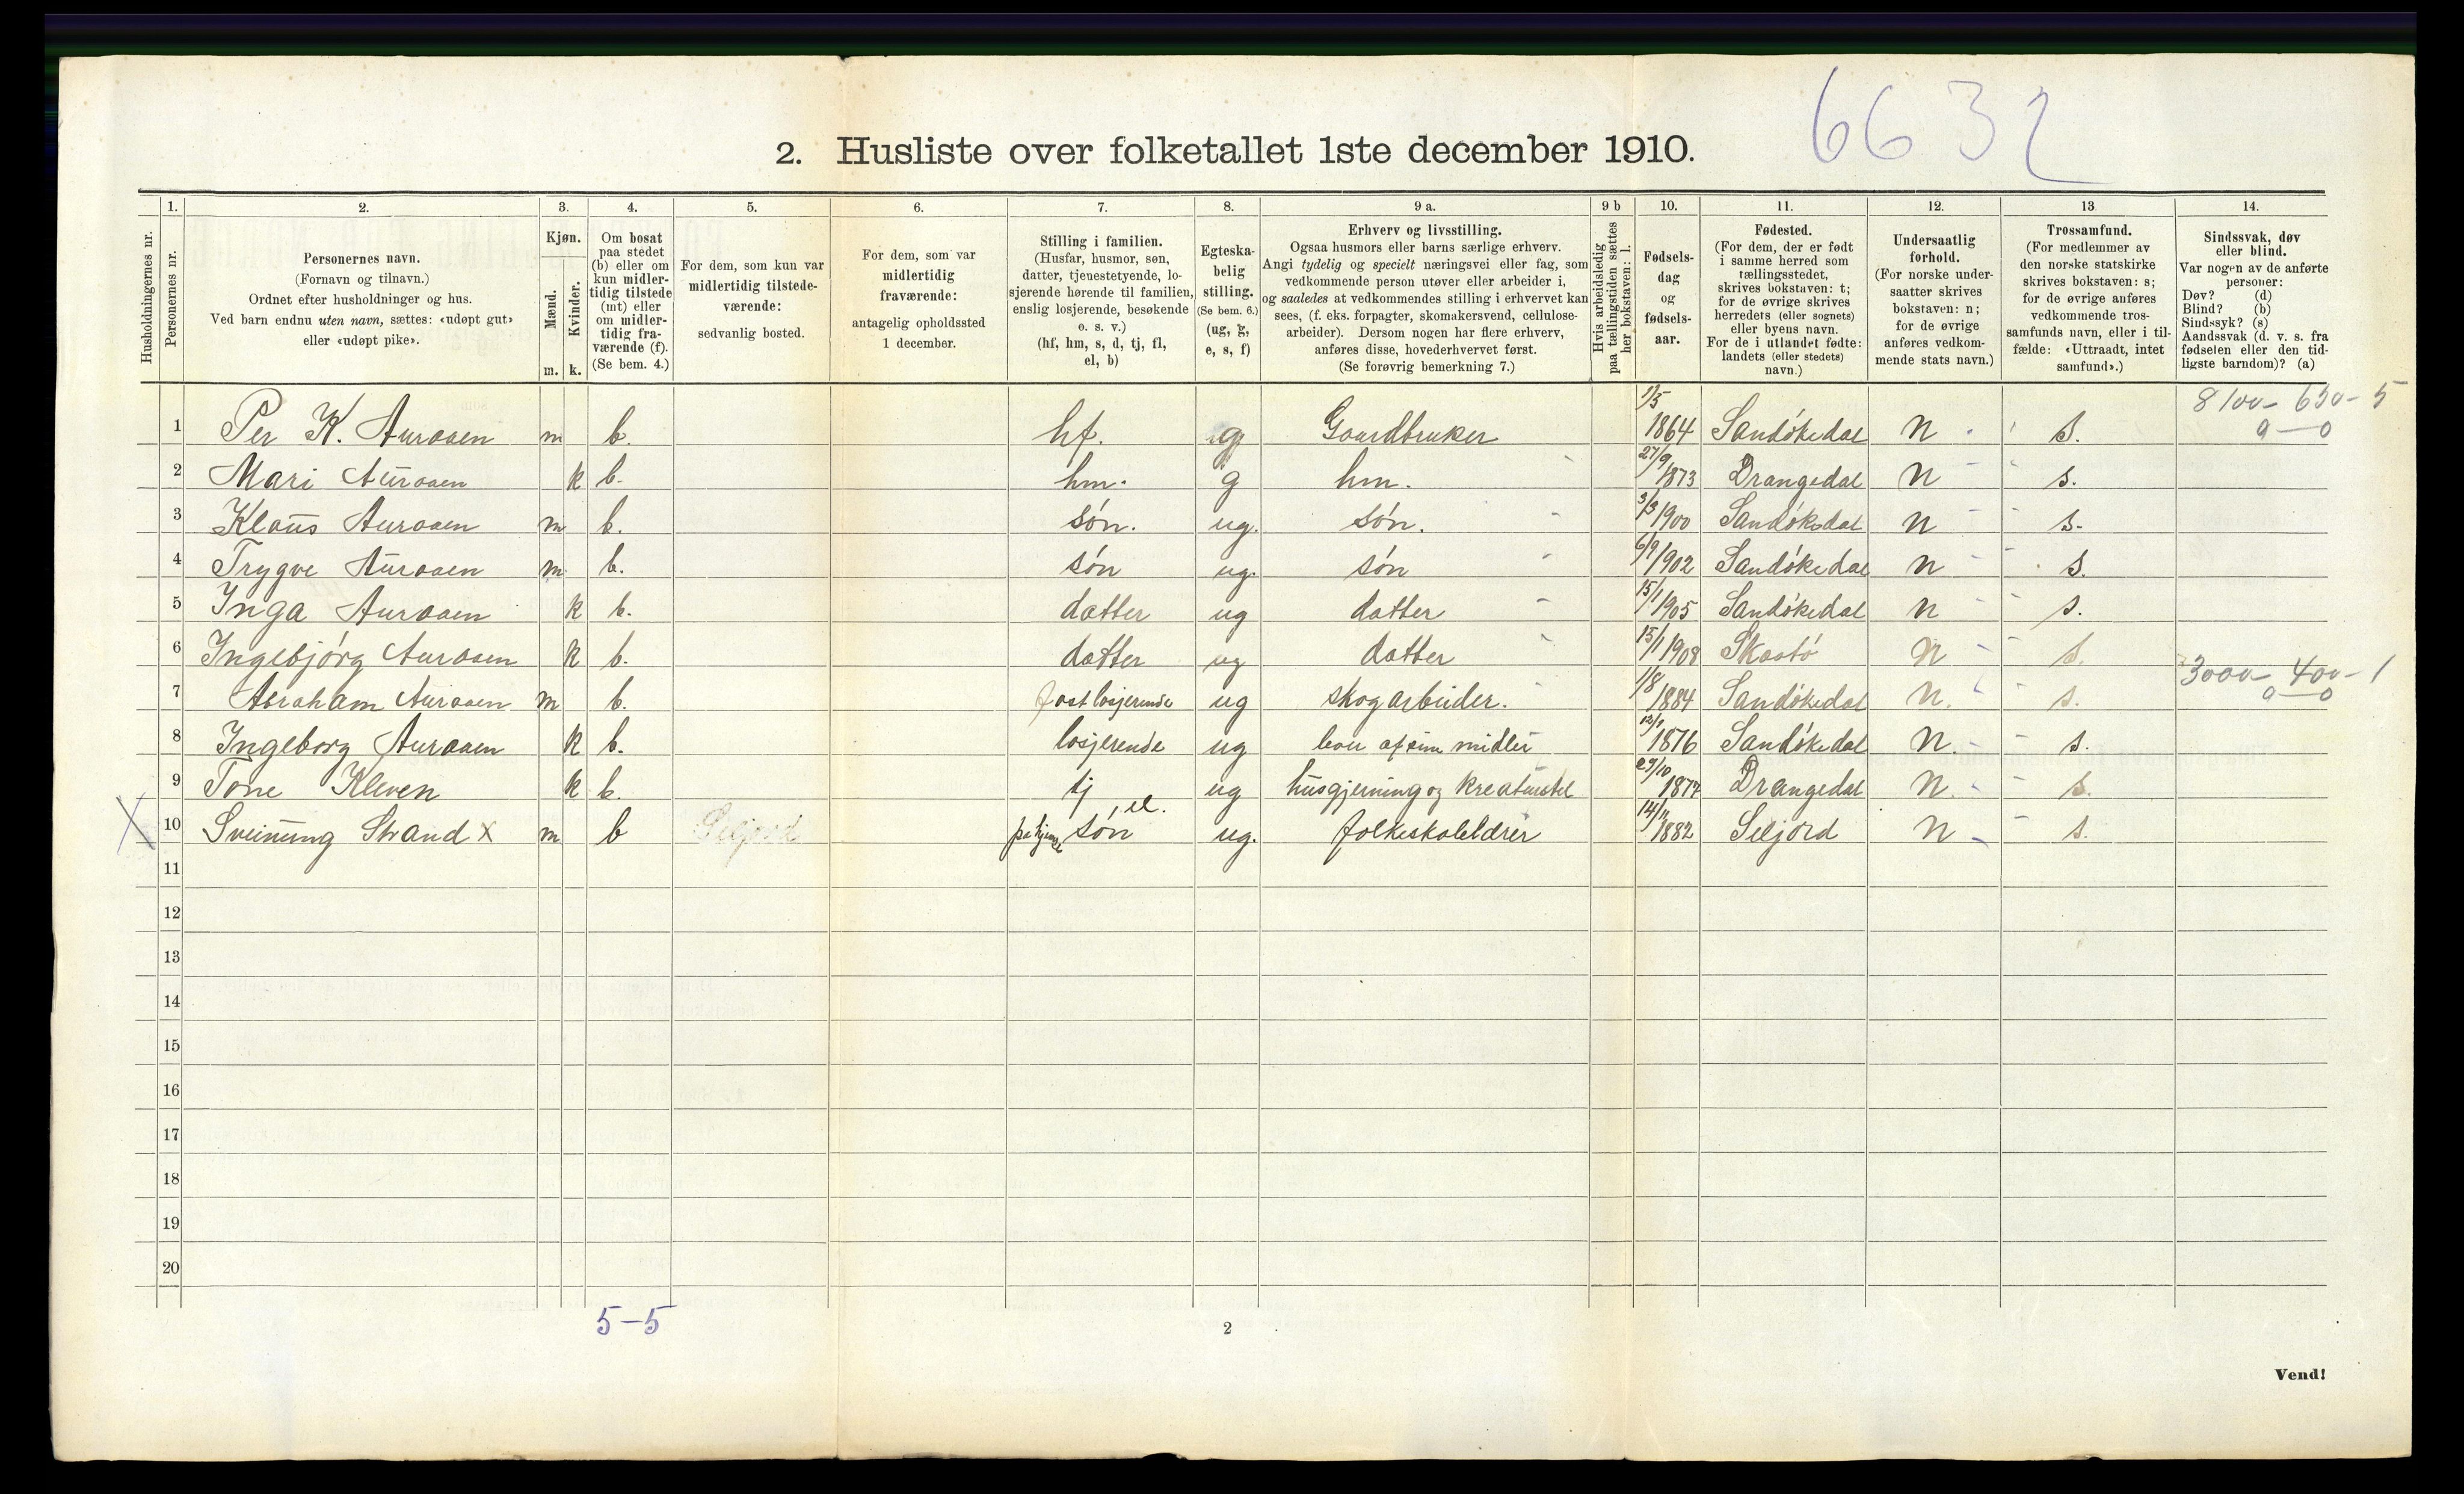 6632
2. Husliste over folketallet 1ste december 1910.
Husholdningernes nr.
1.
Personernes nr.
2.
Personernes navn.
(Fornavn og tilnavn.)
Ordnet efter husholdninger og hus.
Ved barn endnu uten navn, sættes: «udøpt gut»
eller «udøpt pike».
3.
Kjøn.
Mænd.
Kvinder.
m. k.
4.
Om bosat
paa stedet
(b) eller om
kun midler-
tidig tilstede
(mt) eller
om midler-
tidig fra-
værende (f).
(Se bem. 4.)
5.
For dem, som kun var
midlertidig tilstede-
værende:
sedvanlig bosted.
6.
For dem, som var
midlertidig
fraværende:
antagelig opholdssted
1 december.
7.
Stilling i familien.
(Husfar, husmor, søn,
datter, tjenestetyende, lo-
sjerende hørende til familien,
enslig losjerende, besøkende
o. s. v.)
(hf, hm, s, d, tj, fl,
el, b)
8.
Egteska-
belig
stilling.
(Se bem. 6.)
(ug, g,
e, s, f)
9 a.
Erhverv og livsstilling.
Ogsaa husmors eller barns særlige erhverv.
Angi tydelig og specielt næringsvei eller fag, som
vedkommende person utøver eller arbeider i,
og saaledes at vedkommendes stilling i erhvervet kan
sees, (f. eks. forpagter, skomakersvend, cellulose-
arbeider). Dersom nogen har flere erhverv,
anføres disse, hovederhvervet først.
(Se forøvrig bemerkning 7.)
9 b
Hvis arbeidsledig
paa tællingstiden sættes
her bokstaven: l.
10.
Fødsels-
dag
og
fødsels-
aar.
11.
Fødested.
(For dem, der er født
i samme herred som
tællingsstedet,
skrives bokstaven: t;
for de øvrige skrives
herredets (eller sognets)
eller byens navn.
For de i utlandet fødte:
landets (eller stedets)
navn.)
12.
Undersaatlig
forhold.
(For norske under-
saatter skrives
bokstaven: n;
for de øvrige
anføres vedkom-
mende stats navn.)
13
Trossamfund.
(For medlemmer av
den norske statskirke
skrives bokstaven: s;
for de øvrige anføres
vedkommende tros-
samfunds navn, eller i til-
fælde: «Uttraadt, intet
samfund».)
14.
Sindssvak, døv
eller blind.
Var nogen av de anførte
personer:
Døv? (d)
Blind? (b)
Sindssyk? (s)
Aandssvak (d. v. s. fra
fødselen eller den tid-
ligste barndom)? (a)
8100 - 650 - 5
0 - 0
1 Per K. Auraaen m b. hf. g Gaardbruker 1/5 1864 Sandökedal n s.
2 Mari Auraaen k b. hm. g hm. 27/9 1873 Drangedal n s.
3 Klaus Auraaen m b. sön. ug. sön. 3/3 1900 Sandökedal n s.
4 Trygve Auraaen m b. sön ug. sön 6/9 1902 Sandökedal n s.
5 Inga Auraaen k b. datter ug datter 15/1 1905 Sandökedal n s.
6 Ingebjörg Auraaen k b. datter ug datter 15/1 1908 Skaatö n s.
3000 - 400 - 1
0 - 0
7 Abraham Auraaen m b. fast losjerende ug skogarbeider. 1/8 1884 Sandökedal n. s.
8 Ingeborg Auraaen k b. losjerende ug lever af sine midler 1876 Sandökedal n. s.
9 Tone Kleven k b. tj ug husgjerning og kreaturstel 29/10 1874 Drangedal n. s.
X 10 Sveinung Strand x m b Seljord sön , el. ug. folkeskolelærer 1882 Seljord n s.
11
12
13
14
15
16
17
18
19
20
5-5
2
Vend!